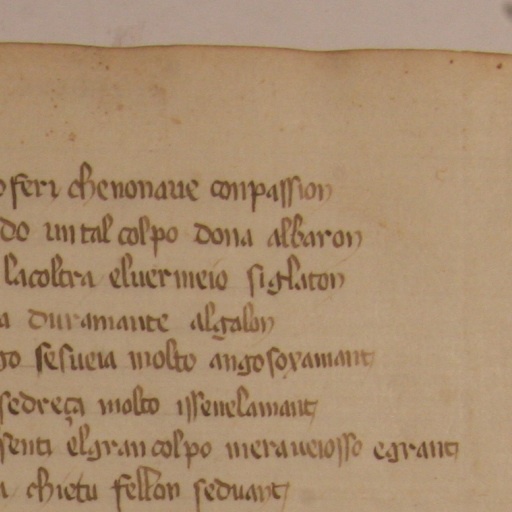 oferi chenonaue conpassion
do untal colpo dona albaron
lacoltra eluermeio siglaton
a duramante algalon
go sesueia molto angosoxamant
sedreça molto issenelamant
senti elgran colpo meraueiosso egrant
a chietu fellon seduant